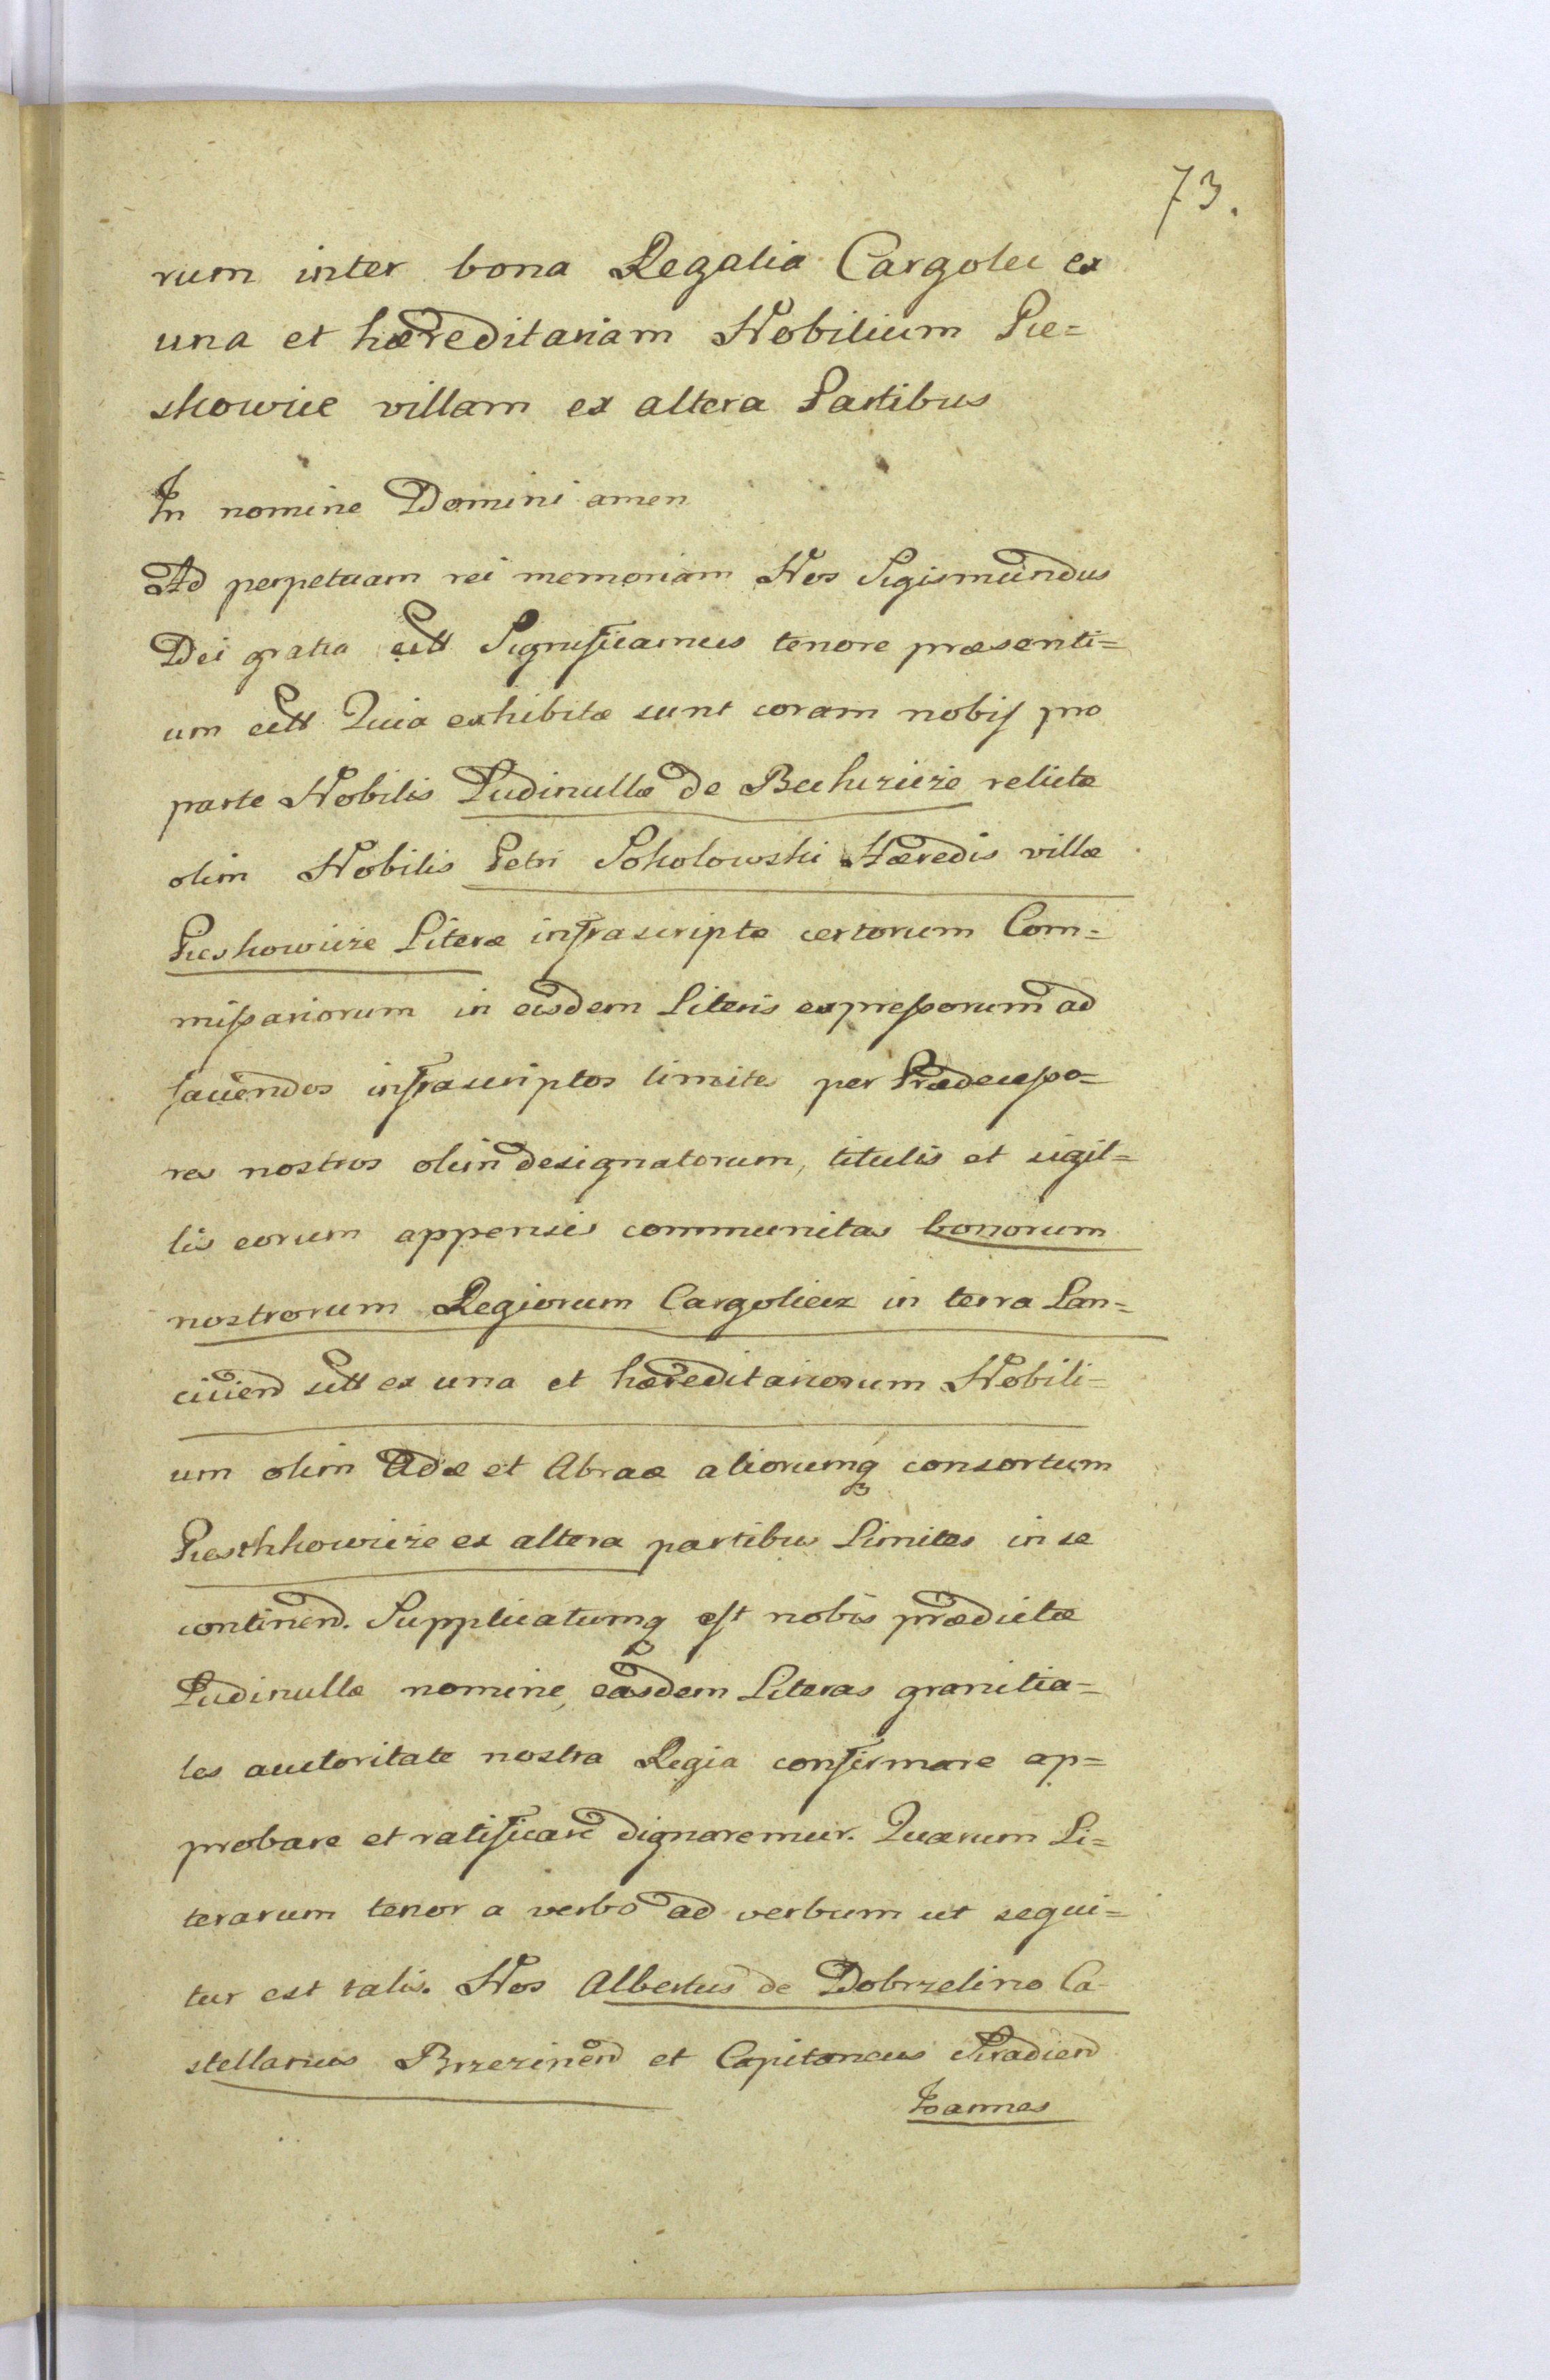 73.
rum inter bona Regalia Cargolec ex
una et hæreditariam Nobilium Pie=
skowice villam ex altera Partibus
In nomine Domini amen
Ad perpetuam rei memoriam Nos Sigismundus
Dei gratia ett Significamus tenore præsenti=
um ett Quia exhibitæ sunt coram nobis pro
parte Nobilis Ludinullæ de relictæ
olim Nobilis Petri Sokolowski Hæredis villæ
Pieskowicze Literæ infrascriptæ certorum Com=
missariorum in eisdem Literis expressorum ad
faciendos infrascriptos limites per Prædecesso=
res nostros olim designatorum, titulis et sigil=
lis eorum appensis communitas bonorum
nostrorum Regiorum Cargolecz in terra Lan=
ciciend ett ex una et hæreditariorum Nobili=
um olim Adæ et Abraæ aliorumq consortum
Piesthkowicze ex altera partibus Limites in se
continend. Supplicatumq est nobis prædictæ
Ludinullæ nomine, easdem Literas granitia=
les auctoritate nostra Regia confirmare ap=
probare et ratificare dignaremur. Quarum Li=
terarum tenor a verbo ad verbum ut sequi=
tur est talis. Nos Albertus de Dobrzelino Ca-
stellanus Brzezinend et Capitaneus Siradiend
Joannes